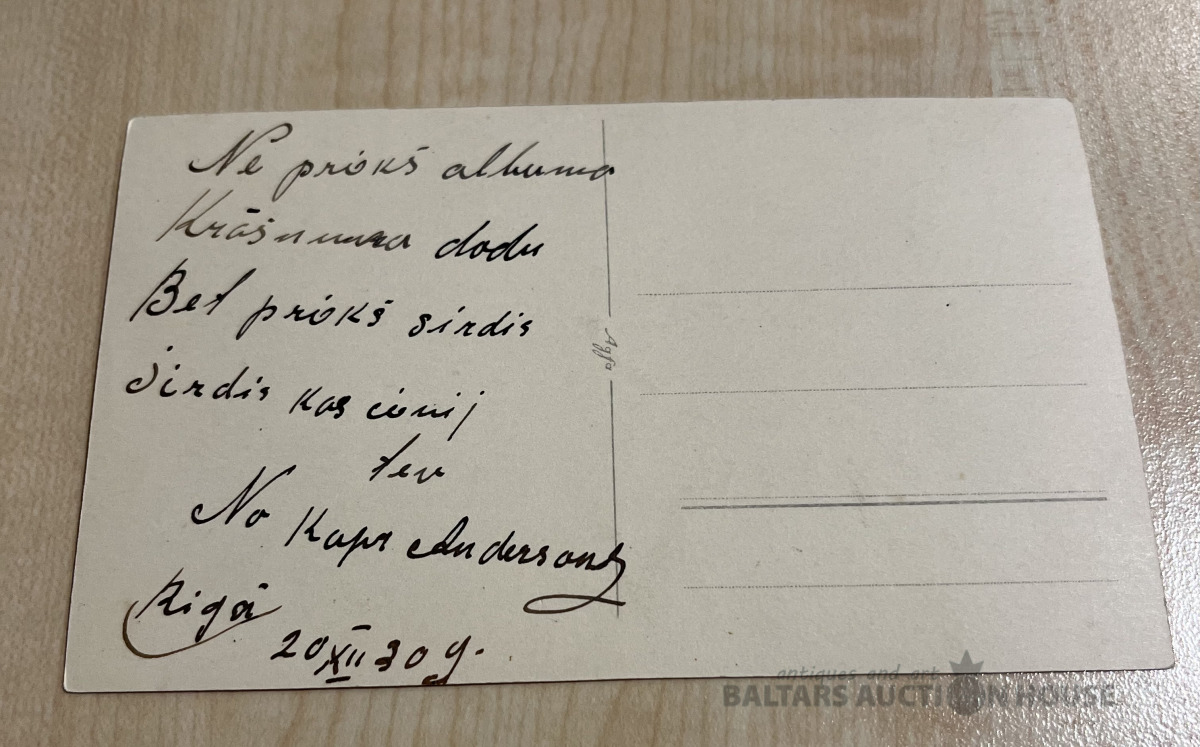 Ne priekš albuma
Krāšnuma dodu
Bet priekš sirdis
Sirdis kas cienij
tev
No Kapr Andersons
Rigā
20 XII 30 g.
Agfa
antiques and art
BALTARS AUCTION HOUSE